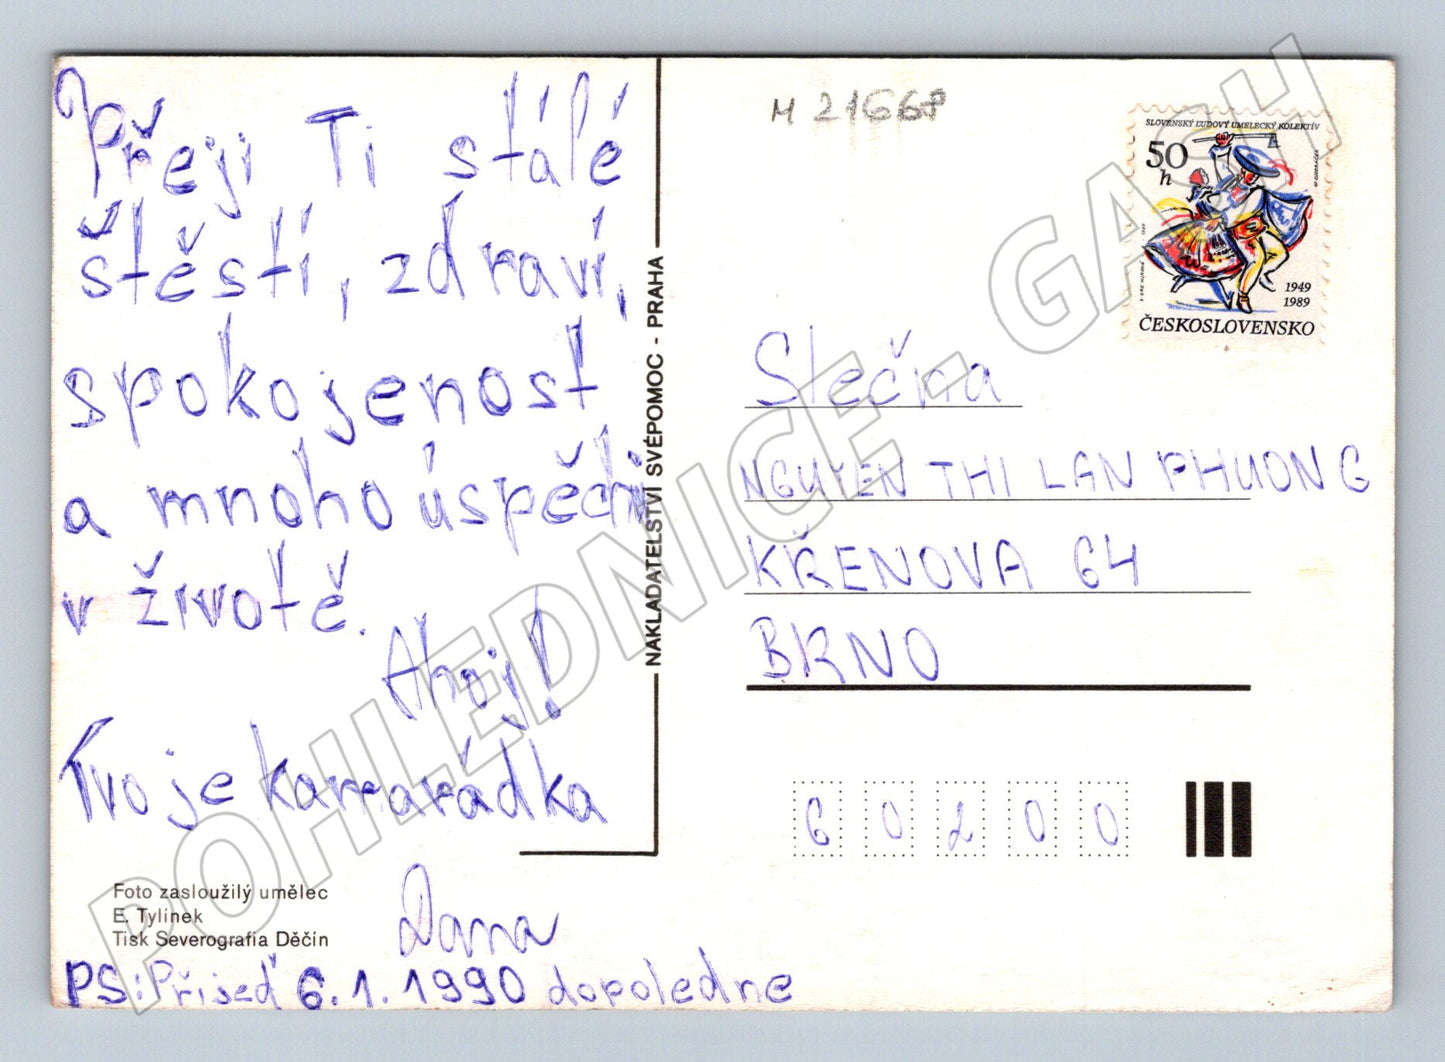 Přeji Ti stálé
štěstí, zdraví,
spokojenost
a mnoho úspěchů
v životě.
Ahoj!
Tvoje kamarádka
Dana
PS: Přijeď 6.1.1990 dopoledne
Foto zasloužilý umělec
E. Tylínek
Tisk Severografia Děčín
NAKLADATELSTVÍ SVÉPOMOC - PRAHA
M 21668
SLOVENSKÝ ĽUDOVÝ UMELECKÝ KOLEKTÍV
50
h
1949
1989
ČESKOSLOVENSKO
Slečna
NGUYEN THI LAN PHUONG
KŘENOVA 64
BRNO
60200
POHLEDNICE - GASH